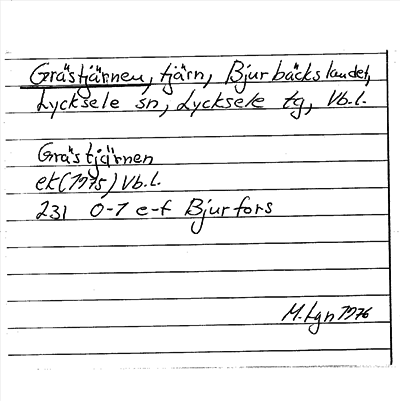 Grästjärnen, tjärn, Bjurbäckslandet,
Lycksele sn, Lycksele tg, Vb.l.
Grästjärnen
ek (1975) Vb.l.
231 0-1 e-f Bjurfors
M. Lgn 1976